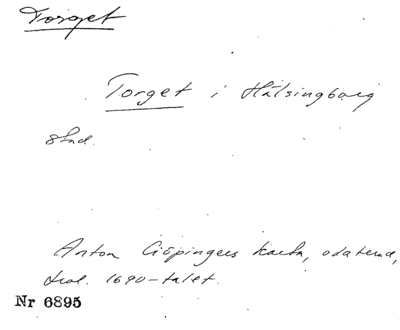 Torget
Torget i Hälsingborg
stad.
Anton Giöpingers karta, odaterad,
trol. 1690-talet.
Nr 6895